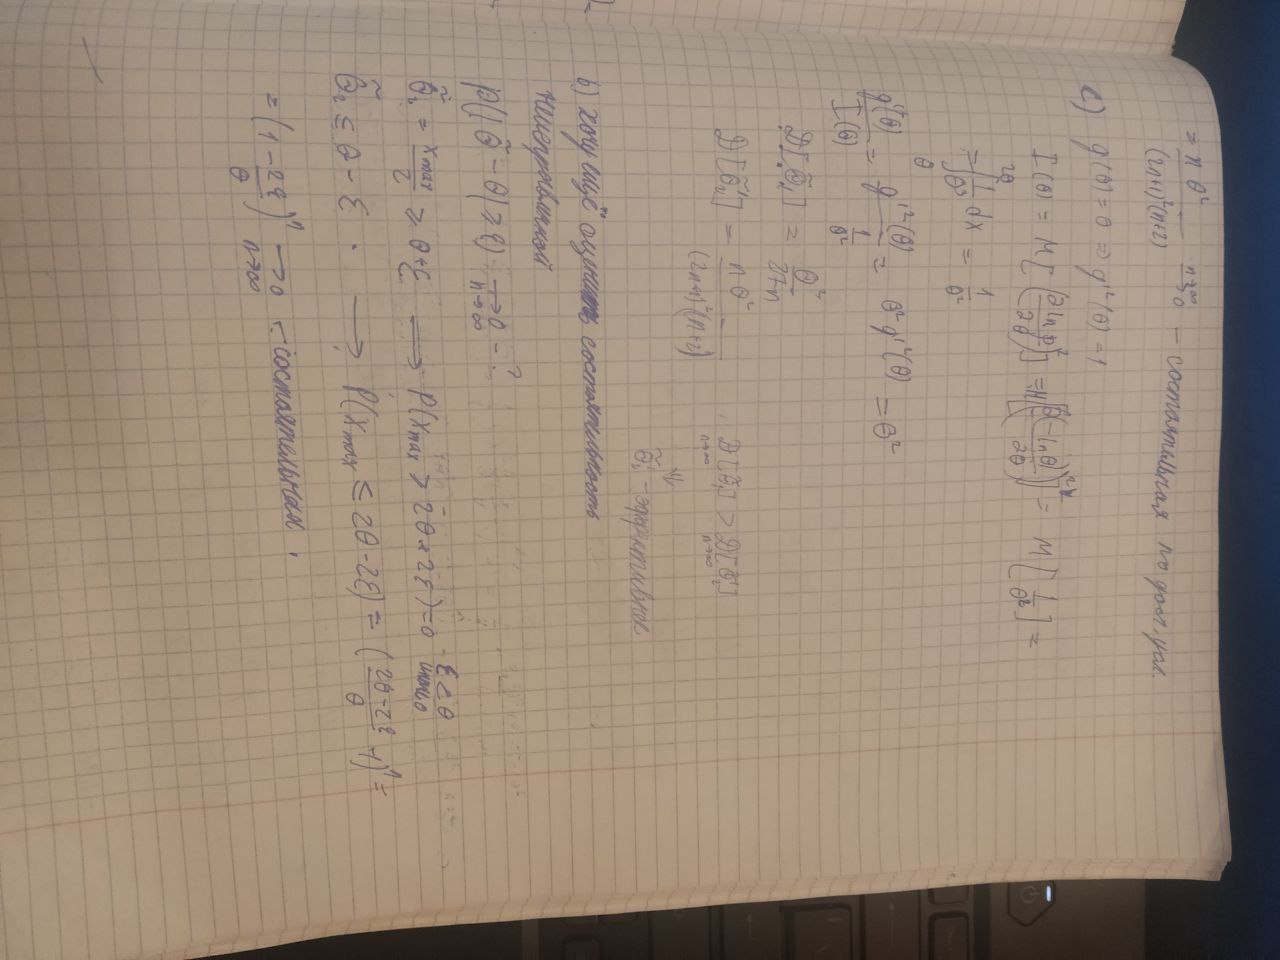 = n θ² / (2n+1)²(n+2) → 0 n→∞ – состоятельная по дост. усл.
c) g(θ) = θ ⇒ g'²(θ) = 1
I(θ) = M[(∂ln p / ∂θ)²] = M[(∂(-lnθ) / ∂θ)²] = M[1/θ²] =
= ∫ 1/θ³ dx = 1/θ²
g'²(θ) / I(θ) = g'²(θ) / (1/θ²) = θ² g'²(θ) = θ²
D[θ̃₁] = θ² / 27n
D[θ̃₂'] = n θ² / (2n+1)²(n+2)
D[θ̃₁] > D[θ̃₂'] n→∞ n→∞
θ̃₂' – эффективнее
b) хочу ещё оценить состоятельность
P(|θ̃ - θ| ≥ ε) → 0 - ? n→∞
θ̃₂ = x max / 2 ≥ θ+ε ← P(x max > 2θ+2ε) = 0 ε < θ
θ̃₂ ≤ θ - ε . → P(x max ≤ 2θ-2ε) = ((2θ-2ε)/θ - 1)ⁿ =
= (1 - 2ε/θ)ⁿ → 0 n→∞ – состоятельная.